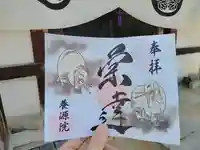 奉拝
栄達
養源院